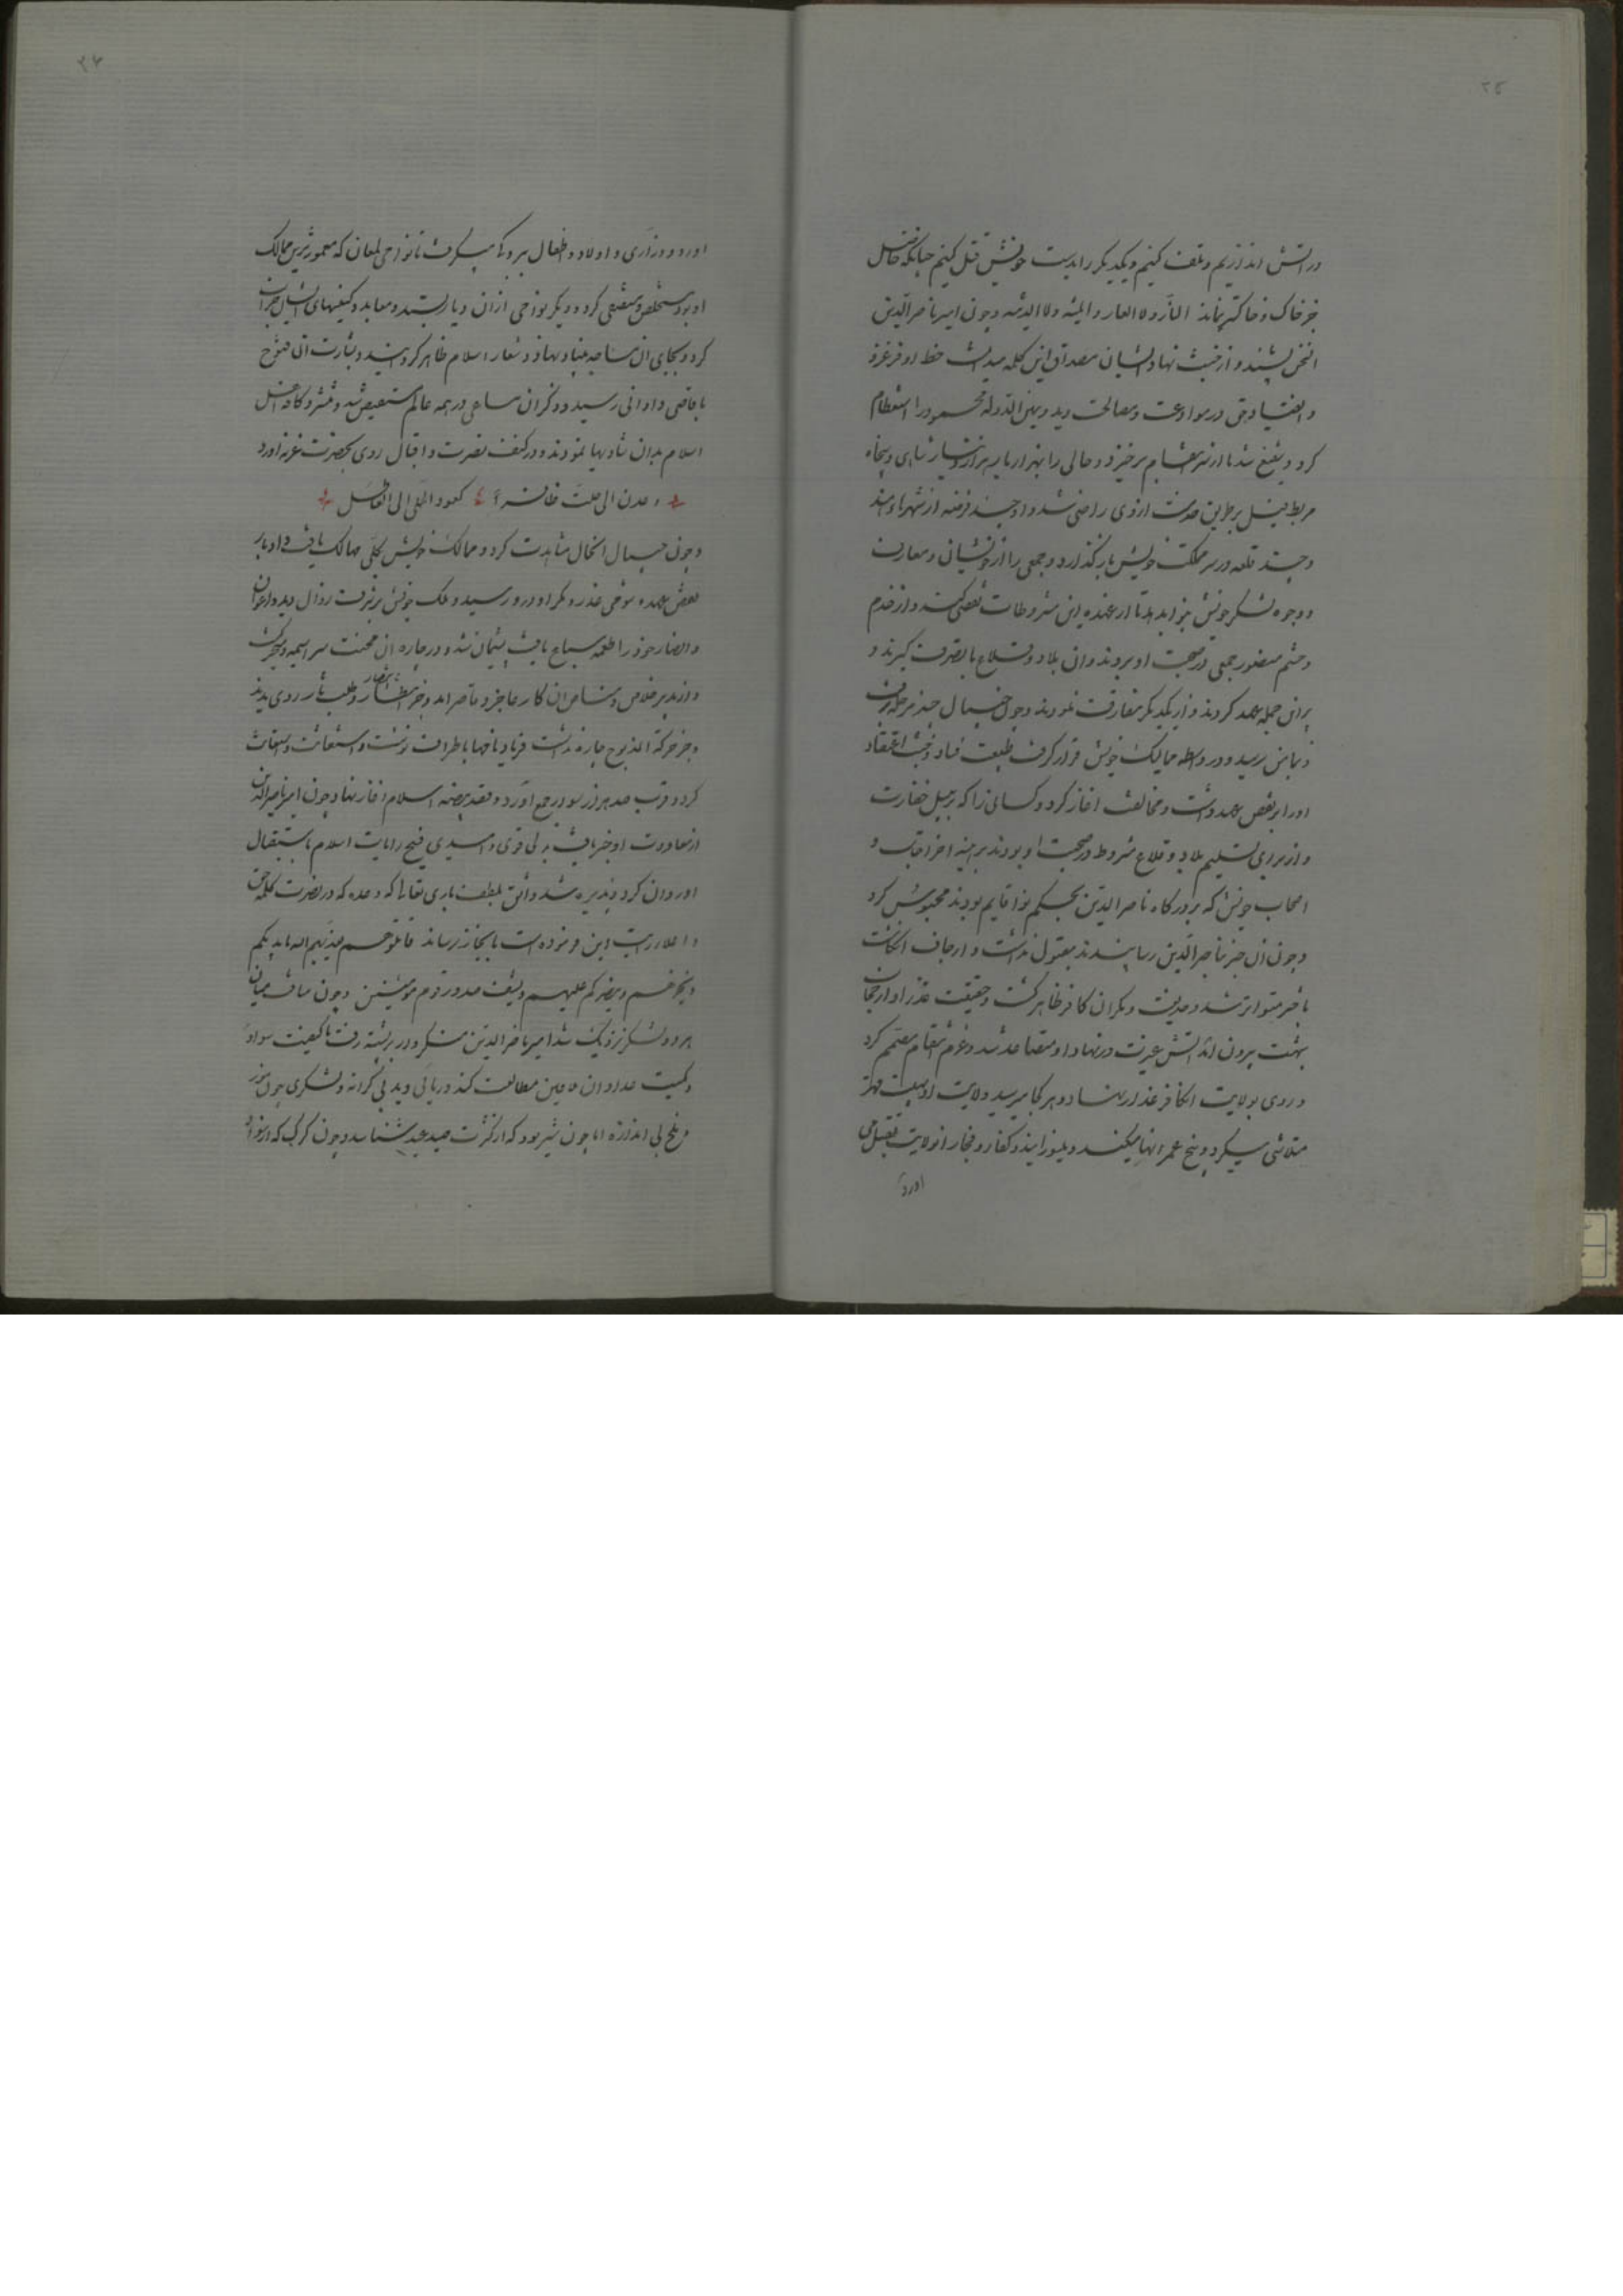 ۲۵
در اتش اندازیم و تلف کنیم و یکدیگر را بدست خویش قتل کنیم چنانکه حاصل
جز خاک و خاکستر نماند النار ولا العار و المنیه ولا الدنیه و چون امیر ناصر الدین
این سخن بشنید و از خبث نهاد ایشان مصداق این کلمه میدانست
کرد و شفیع شد تا از سر انتقام برخیزد و حالی را بهزار بار هزار درم شاهی و پنجاه
مربط فیل برطریق هدنت از وی راضی شد و او چند رقعه از شهرها هند
و چند قلعه در سر مملکت خویش باز گذارد و جمعی را از خویشان و معارف
و وجوه لشکر خویش بنوا بدهد تا از عهده این مشروطات تفصی کند و از خدم
و حشم منصور جمعی در صحبت او بروند و آن بلاد و قلاع با تصرف گیرند و
بر این جمله عهد کردند و از یکدیگر مفارقت نمودند و چون جیپال چند مرحله برفت
و بمامن رسید و در واسطه ممالک خویش قرار گرفت طبیعت فساد و خبث اعتقاد
او را بر نقض عهد داشت و مخالفت اغاز کرد و کسانی را که بر سبیل خفارت
و از برای تسلیم بلاد و قلاع مشروط در صحبت او بودند برهینه
اصحاب خویش که بدرگاه ناصر الدین بحکم نوا قایم بودند محبوس کرد
و چون ان خبر بناصر الدین رسانیدند مقبول نداشت و ارجاف انگاشت
تا خبر متواتر شد و خدیعت و مکر ان کافر ظاهر گشت و حقیقت غدر او از حجاب
شبهت بیرون امد اتش غیرت در نهاد او متصاعد شد و عزم انتقام مصمم کرد
و روی بولایت ان کافر غدار نهاد و بهر کجا میرسید ولایت او بسیف قهر
متلاشی میکرد و بیخ عمر انها میکند و میسوزانید و کفار و فجار ان ولایت بقتل می
اورد
۲۶
اورد و ذراری و اولاد و اطفال ببردگی میگرفت تا نواحی لمغان که معمورترین ممالک
او بود مستخلص و مستصفی کرد و دیگر نواحی از ان دیار بستد و معابد و کنیسهای ایشان خراب
کرد و بجای ان مساجد بنیاد نهاد و شعار اسلام ظاهر گردانید و بشارت ان فتوح
باقاصی و ادانی رسید و ذکر ان مساعی در همه عالم مستفیض شد و منتشر و کافه اهل
اسلام بدان شادیها نمودند و در کنف نصرت و اقبال روی بحضرت غزنه اورد
و عدن الی حلب ظافره کعود الحلی الی العاطل
و چون جیپال انحال مشاهدت کرد و ممالک خویش بکلی مهالک یافت و ادبار
نقض عهد و شوخی غدر و مکر او درو رسید و ملک خویش بر شرف زوال دید و اعوان
و انصار خود را طعمه سباع یافت پشیمان شد و در چاره ان محنت سراسیمه و متحیر گشت
و از تدبیر خلاص و مناص ان کار عاجز و قاصر امد و جز استنصار و طلب ثار روی ندید
و جز حرکة المذبوح چاره نداشت فریادنامها باطراف نوشت و استعانت و استغاثت
کرد و قرب صد هزار سوار جمع اورد و قصد بیضه اسلام اغاز نهاد و چون امیر ناصر الدین
از معاودت او خبر یافت بدلی قوی و امیدی فسیح رایات اسلام باستقبال
او روان کرد و پذیره شد واثق بلطف باری تعالی که وعده که در نصرت کلمه حق
و اعلاء رایت دین فرموده است بانجاز رساند قاتلوهم یعذبهم الله بایدیکم
و یخزهم و ینصرکم علیهم و یشف صدور قوم مومنین و چون مسافت میان
هر دو لشکر نزدیک شد امیر ناصر الدین متنکروار بر پشته رفت تا کیفیت سواد
و کمیت عداد ان ملاعین مطالعت کند دریائی دید بی کرانه و لشکری چون مور
و ملخ بی اندازه اما چون شیر بود که از کثرت صید نشناسد و چون گرگ که